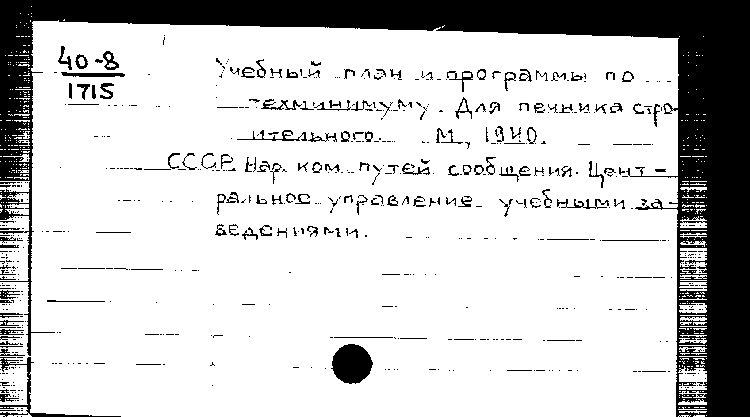 40-8
1715
Учебный план и программы по
техминимуму. Для печника стро-
ительного. М., 1940.
СССР. Нар. ком. путей сообщения. Цент-
ральное управление учебными за-
ведениями.